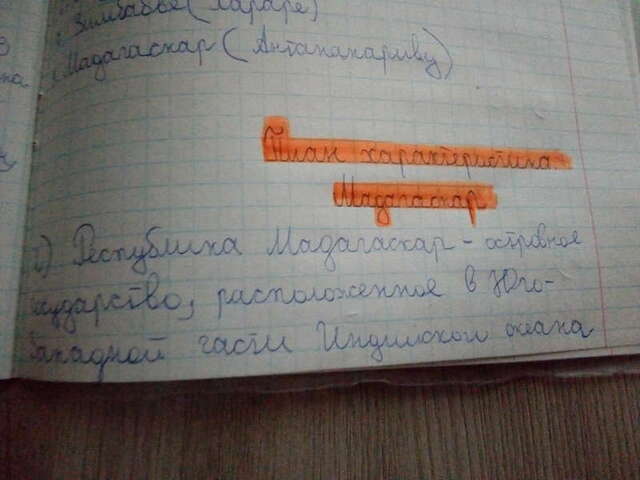 Зимбабве (Хараре)
Мадагаскар (Антананариву)
План характеристика
Мадагаскар
1) Республика Мадагаскар - островное
государство, расположенное в Юго-
Западной части Индийского океана